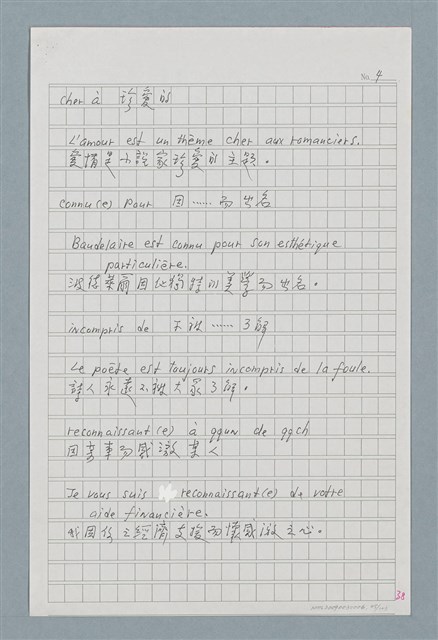 No. 4
cher à 珍愛的
L'amour est un thème cher aux romanciers.
愛情是小說家珍愛的主題。
connu(e) pour 因……而出名
Baudelaire est connu pour son esthétique
particulière.
波德萊爾因他獨特的美學而出名。
incompris de 不被……了解
Le poète est toujours incompris de la foule.
詩人永遠不被大眾了解。
reconnaissant(e) à qqun de qqch
因某事而感激某人
Je vous suis reconnaissant(e) de votre
aide financière.
我因你之經濟支援而懷感激之心。
38